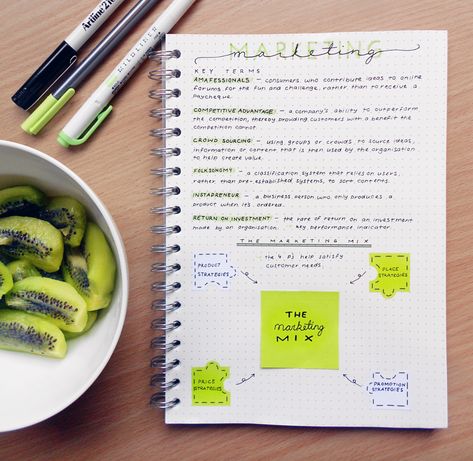 Artline 2
MILDLINER
MARKETING
marketing
KEY TERMS
AMAFESSIONALS - consumers who contribute ideas to online
forums for the fun and challenge, rather than to receive a
paycheque.
COMPETITIVE ADVANTAGE - a company's ability to outperform
the competition, thereby providing customers with a benefit the
competition cannot.
CROWD SOURCING - using groups or crowds to source ideas,
information or content that is then used by the organisation
to help create value.
FOLKSONOMY - a classification system that relies on users,
rather than pre-established systems, to sort contents.
INSTAPRENEUR - a business person who only produces a
product when it's ordered.
RETURN ON INVESTMENT - the rate of return on an investment
made by an organisation. key performance indicator.
THE MARKETING MIX
the 4 p's help satisfy
customer needs.
PRODUCT
STRATEGIES
PLACE
STRATEGIES
THE
marketing
MIX
PRICE
STRATEGIES
PROMOTION
STRATEGIES